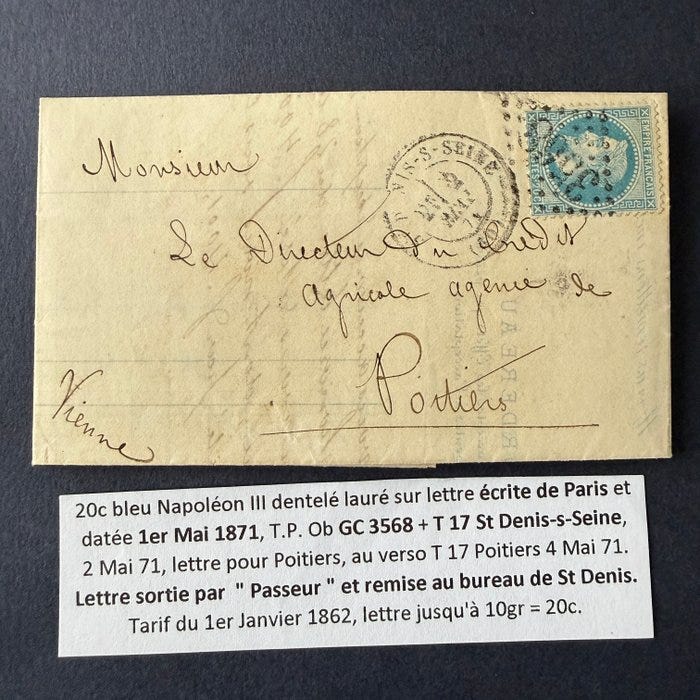 Monsieur
Le Directeur du Crédit
Agricole agence de
Poitiers
Vienne
NIS-S-SEINE
2
MAI
71
EMPIRE FRANÇAIS
20c bleu Napoléon III dentelé lauré sur lettre écrite de Paris et
datée 1er Mai 1871, T.P. Ob GC 3568 + T 17 St Denis-s-Seine,
2 Mai 71, lettre pour Poitiers, au verso T 17 Poitiers 4 Mai 71.
Lettre sortie par " Passeur " et remise au bureau de St Denis.
Tarif du 1er Janvier 1862, lettre jusqu'à 10gr = 20c.